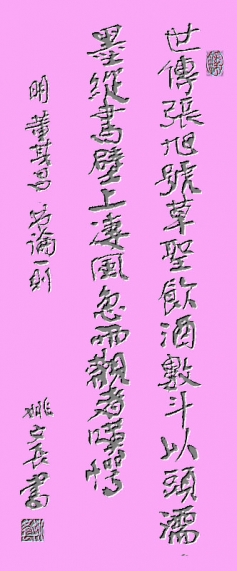 世傳張旭號草聖飲酒數斗以頭濡
墨縱書壁上凄風急雨觀者嘆愕
明董其昌书論一则
姚文長書